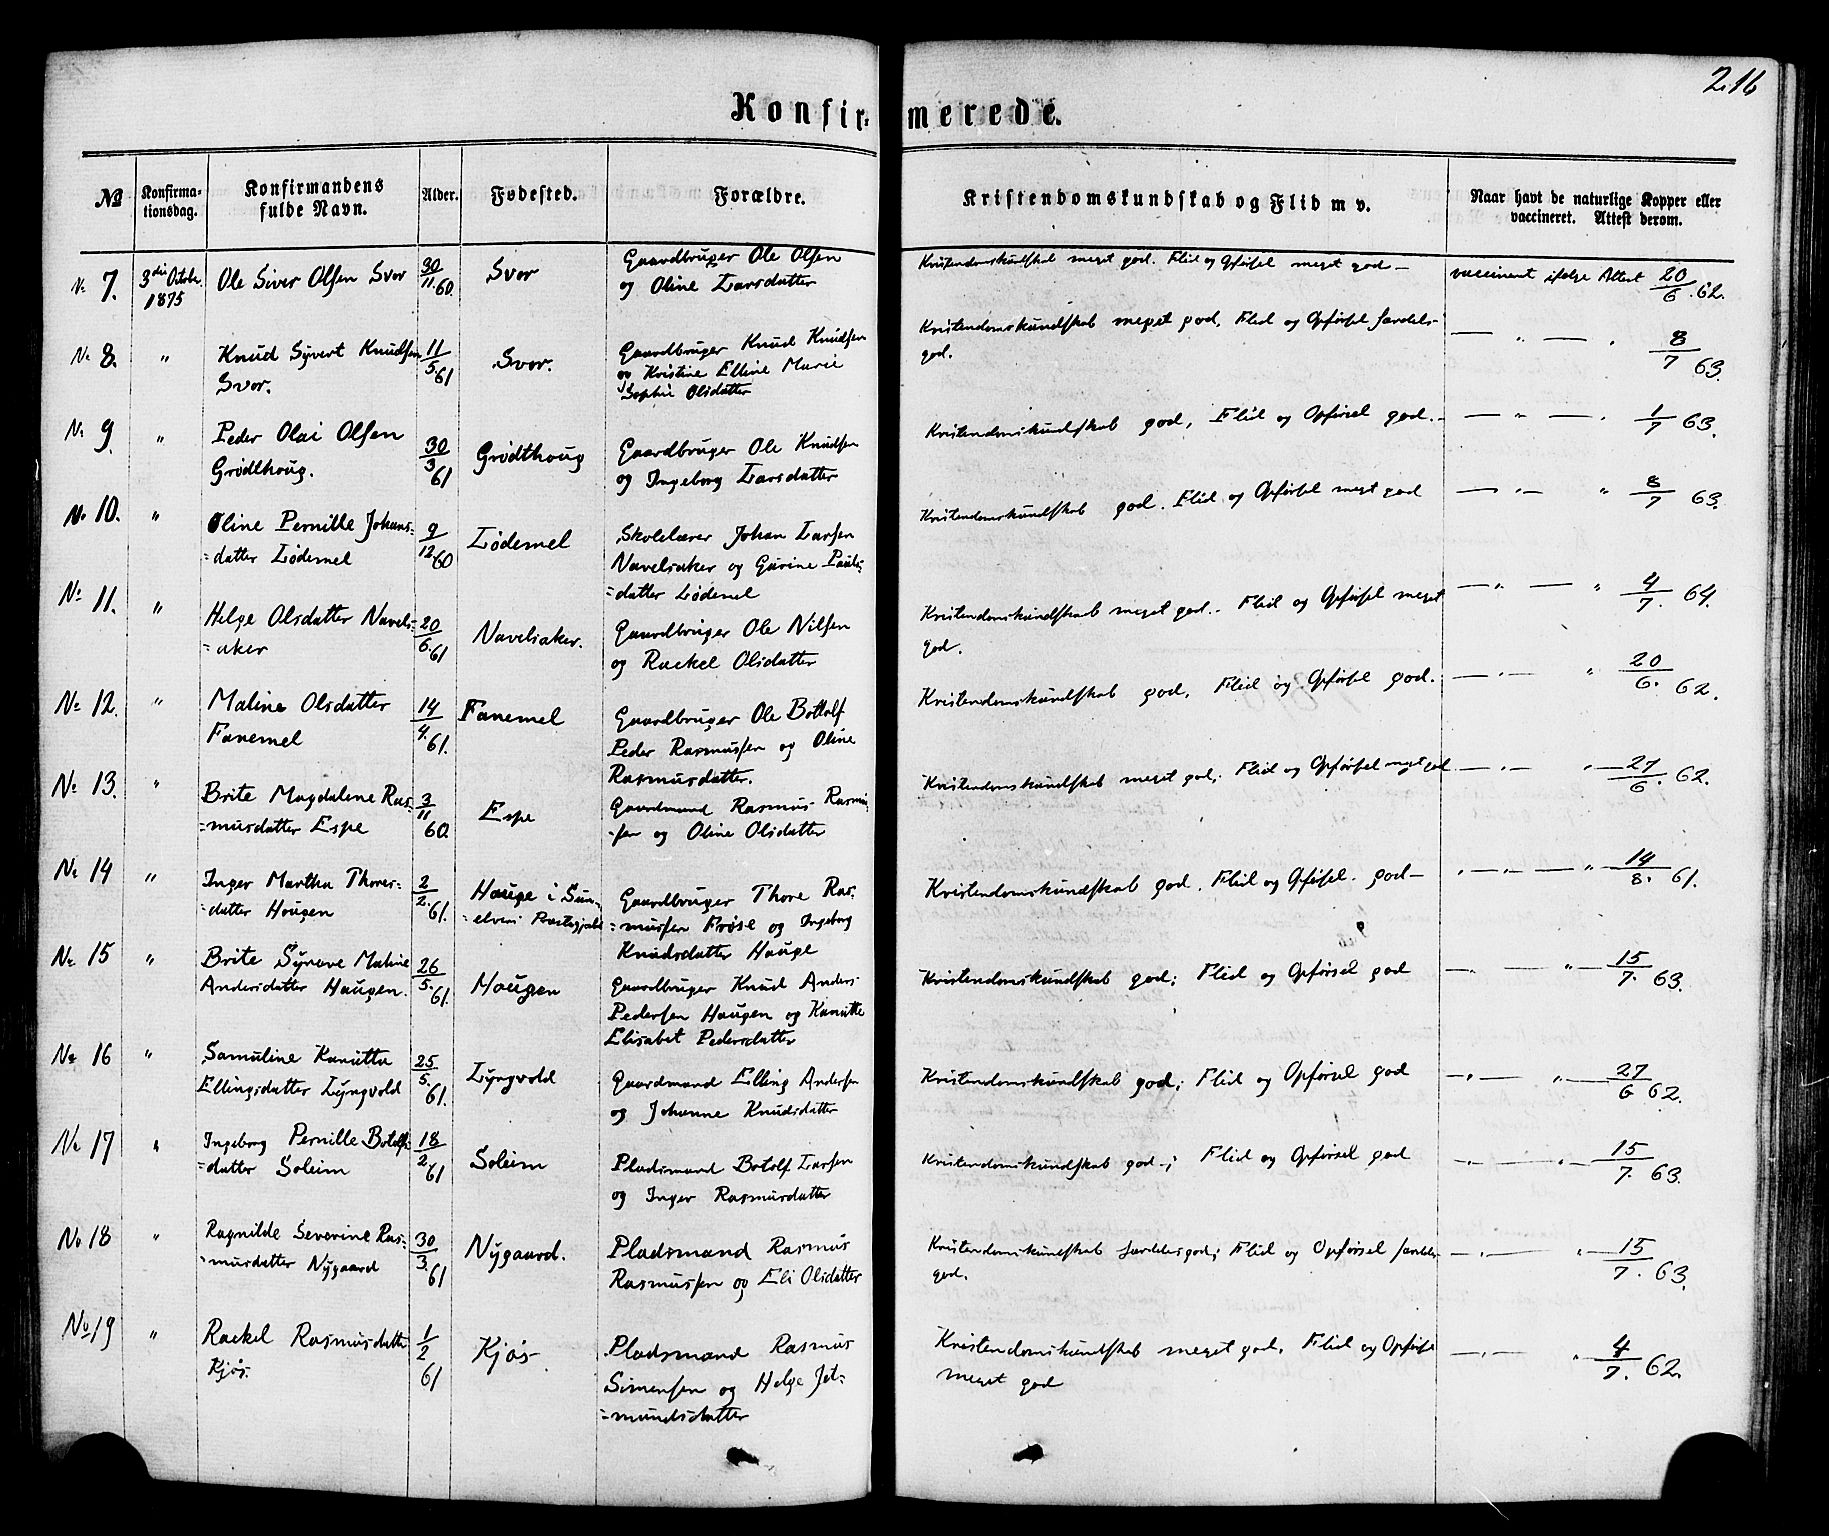 216
Konfirmerede.
№ Konfirmationsdag. Konfirmandens fulde Navn. Alder. Fødested. Forældre. Kristendomskundskab og Flid m v. Naar havt de naturlige Kopper eller vaccineret. Attest derom.
N. 7. 3die October 1875 Ole Siver Olsen Svor 30/11.60. Svor Gaardbruger Ole Olsen
og Oline Larsdatter
Kristendomskundskab meget god. Flid og Opførsel meget god –
vaccineret ifølge Attest 20/6.62.
N. 8. " Knud Syvert Knudsen 11/5.61 Svor. Gaardbruger Knud Knudsen
Svor.
og Kristine Elline Marie
Sophie Olsdatter
Kristendomskundskab meget god, Flid og Opførsel særdeles
god.
— " — " 8/7 63.
N. 9. " Peder Olai Olsen 30/3.61 Grødthoug Gaardbruger Ole Knudsen
Grødthoug.
og Ingeborg Larsdatter
Kristendomskundskab god, Flid og Opførsel god.
— " — " 1/7 63.
No 10. " Oline Pernille Johans- 9/12.60 Lødemel Skolelærer Johan Larsen
=datter Lødemel
Navelsaker og Gurine Pauls-
=datter Lødemel
Kristendomskundskab god. Flid og Opførsel meget god
— " — " 8/7 63.
No 11. " Helge Olsdatter Navels- 20/6.61 Navelsaker. Gaardbruger Ole Nilsen
=aker
og Rackel Olsdatter
Kristendomskundskab meget god. Flid og Opførsel meget
god.
— " — " 4/7. 64.
No 12. " Maline Olsdatter 14/4.61. Fanemel Gaardbruger Ole Bottolf
Fanemel
Peder Rasmussen og Oline
Rasmusdatter.
Kristendomskundskab god, Flid og Opførsel god.
— " — " 20/6. 62.
No 13. " Brite Magdalene Ras- 3/11 60. Espe Gaardmand Rasmus Rasmu-
=musdatter Espe
-sen og Oline Olsdatter
Kristendomskundskab meget god; Flid og Opførsel meget god
— " — " 27/6. 62.
No 14 " Inger Martha Thores- 2/2.61. Hauge i Sun- Gaardbruger Thore Ras-
=datter Hougen
=elven Præstegjeld
=mussen Frøse og Ingeborg
Knudsdatter Hauge
Kristendomskundskab god. Flid og Opførsel god –
" — " — " 14/8. 61.
No 15 " Brite Synove Maline 26/5.61. Hougen Gaardbruger Knud Anders
Andersdatter Haugen.
Pedersen Haugen og Kanutte
Elisabet Pedersdatter
Kristendomskundskab god; Flid og Opførsel god
— " — " 15/7. 63.
No 16 " Samuline Kanutta 25/5.61. Lyngvold Gaardmand Elling Andersen
Ellingsdatter Lyngvold
og Johanne Knudsdatter
Kristendomskundskab god; Flid og Opførsel god
— " — " 27/6 62.
No 17 " Ingeborg Pernille Botolfs- 18/2.61 Soleim Pladsmand Botolf Larsen
=datter Soleim
og Inger Rasmusdatter
Kristendomskundskab god; Flid og Opførsel god
— " — " 15/7. 63.
No 18 " Ragnilde Severine Ras- 30/3.61 Nygaard. Pladsmand Rasmus
=musdatter Nygaard
Rasmussen og Eli Olsdatter
Kristendomskundskab særdelesgod; Flid og Opførsel særdeles
god.
— " — " 15/7. 63.
No 19 " Rackel Rasmusdatter 1/2 61 Kjøs Pladsmand Rasmus
Kjøs.
Simensen og Helge Jet-
=mundsdatter
Kristendomskundskab meget god. Flid og Opførsel
meget god
— " — " 4/7. 62.